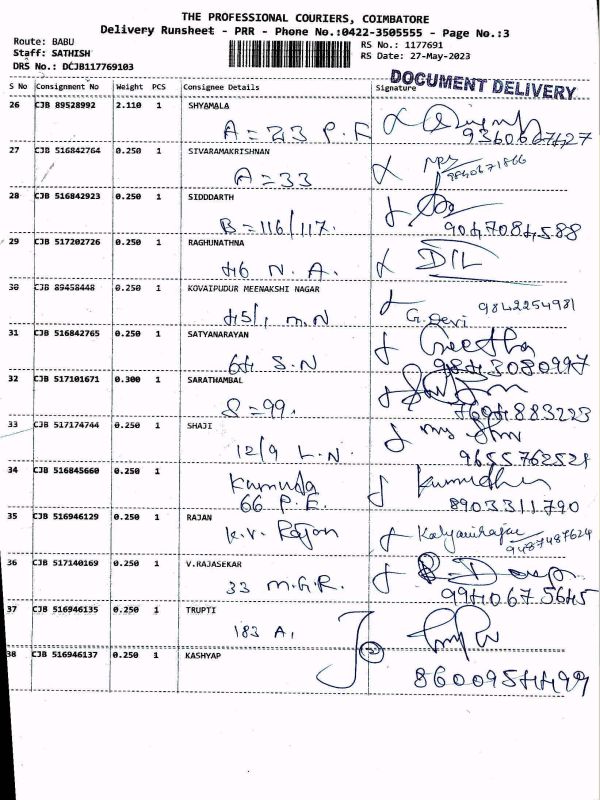 THE PROFESSIONAL COURIERS, COIMBATORE
Delivery Runsheet - PRR - Phone No.:0422-3505555 - Page No.:3
Route: BABU
Staff: SATHISH
DRS No.: DCJB117769103
RS No.: 1177691
RS Date: 27-May-2023
DOCUMENT DELIVERY
S No Consignment No Weight PCS Consignee Details Signature
26 CJB 89528992 2.110 1 SHYAMALA
A = 23 P.R 9360667627
27 CJB 516842764 0.250 1 SIVARAMAKRISHNAN
A = 33 9840671866
28 CJB 516842923 0.250 1 SIDDDARTH
B = 116/117. 9047084588
29 CJB 517202726 0.250 1 RAGHUNATHNA
46 N. A.
30 CJB 89458448 0.250 1 KOVAIPUDUR MEENAKSHI NAGAR
45/1 M.N G. Devi 9842254981
31 CJB 516842765 0.250 1 SATYANARAYAN
64 S.N Geetha 9843080997
32 CJB 517101671 0.300 1 SARATHAMBAL
S = 99. 7694883223
33 CJB 517174744 0.250 1 SHAJI
12/9 L.N. 9655762521
34 CJB 516845660 0.250 1
Kumuda
66 P.E. Kumudha 8903311790
35 CJB 516946129 0.250 1 RAJAN
K.V. Rajan Kalyanirajan 9487487624
36 CJB 517140169 0.250 1 V.RAJASEKAR
33 M.G.R. 9940675645
37 CJB 516946135 0.250 1 TRUPTI
183 A,
38 CJB 516946137 0.250 1 KASHYAP
8600954499